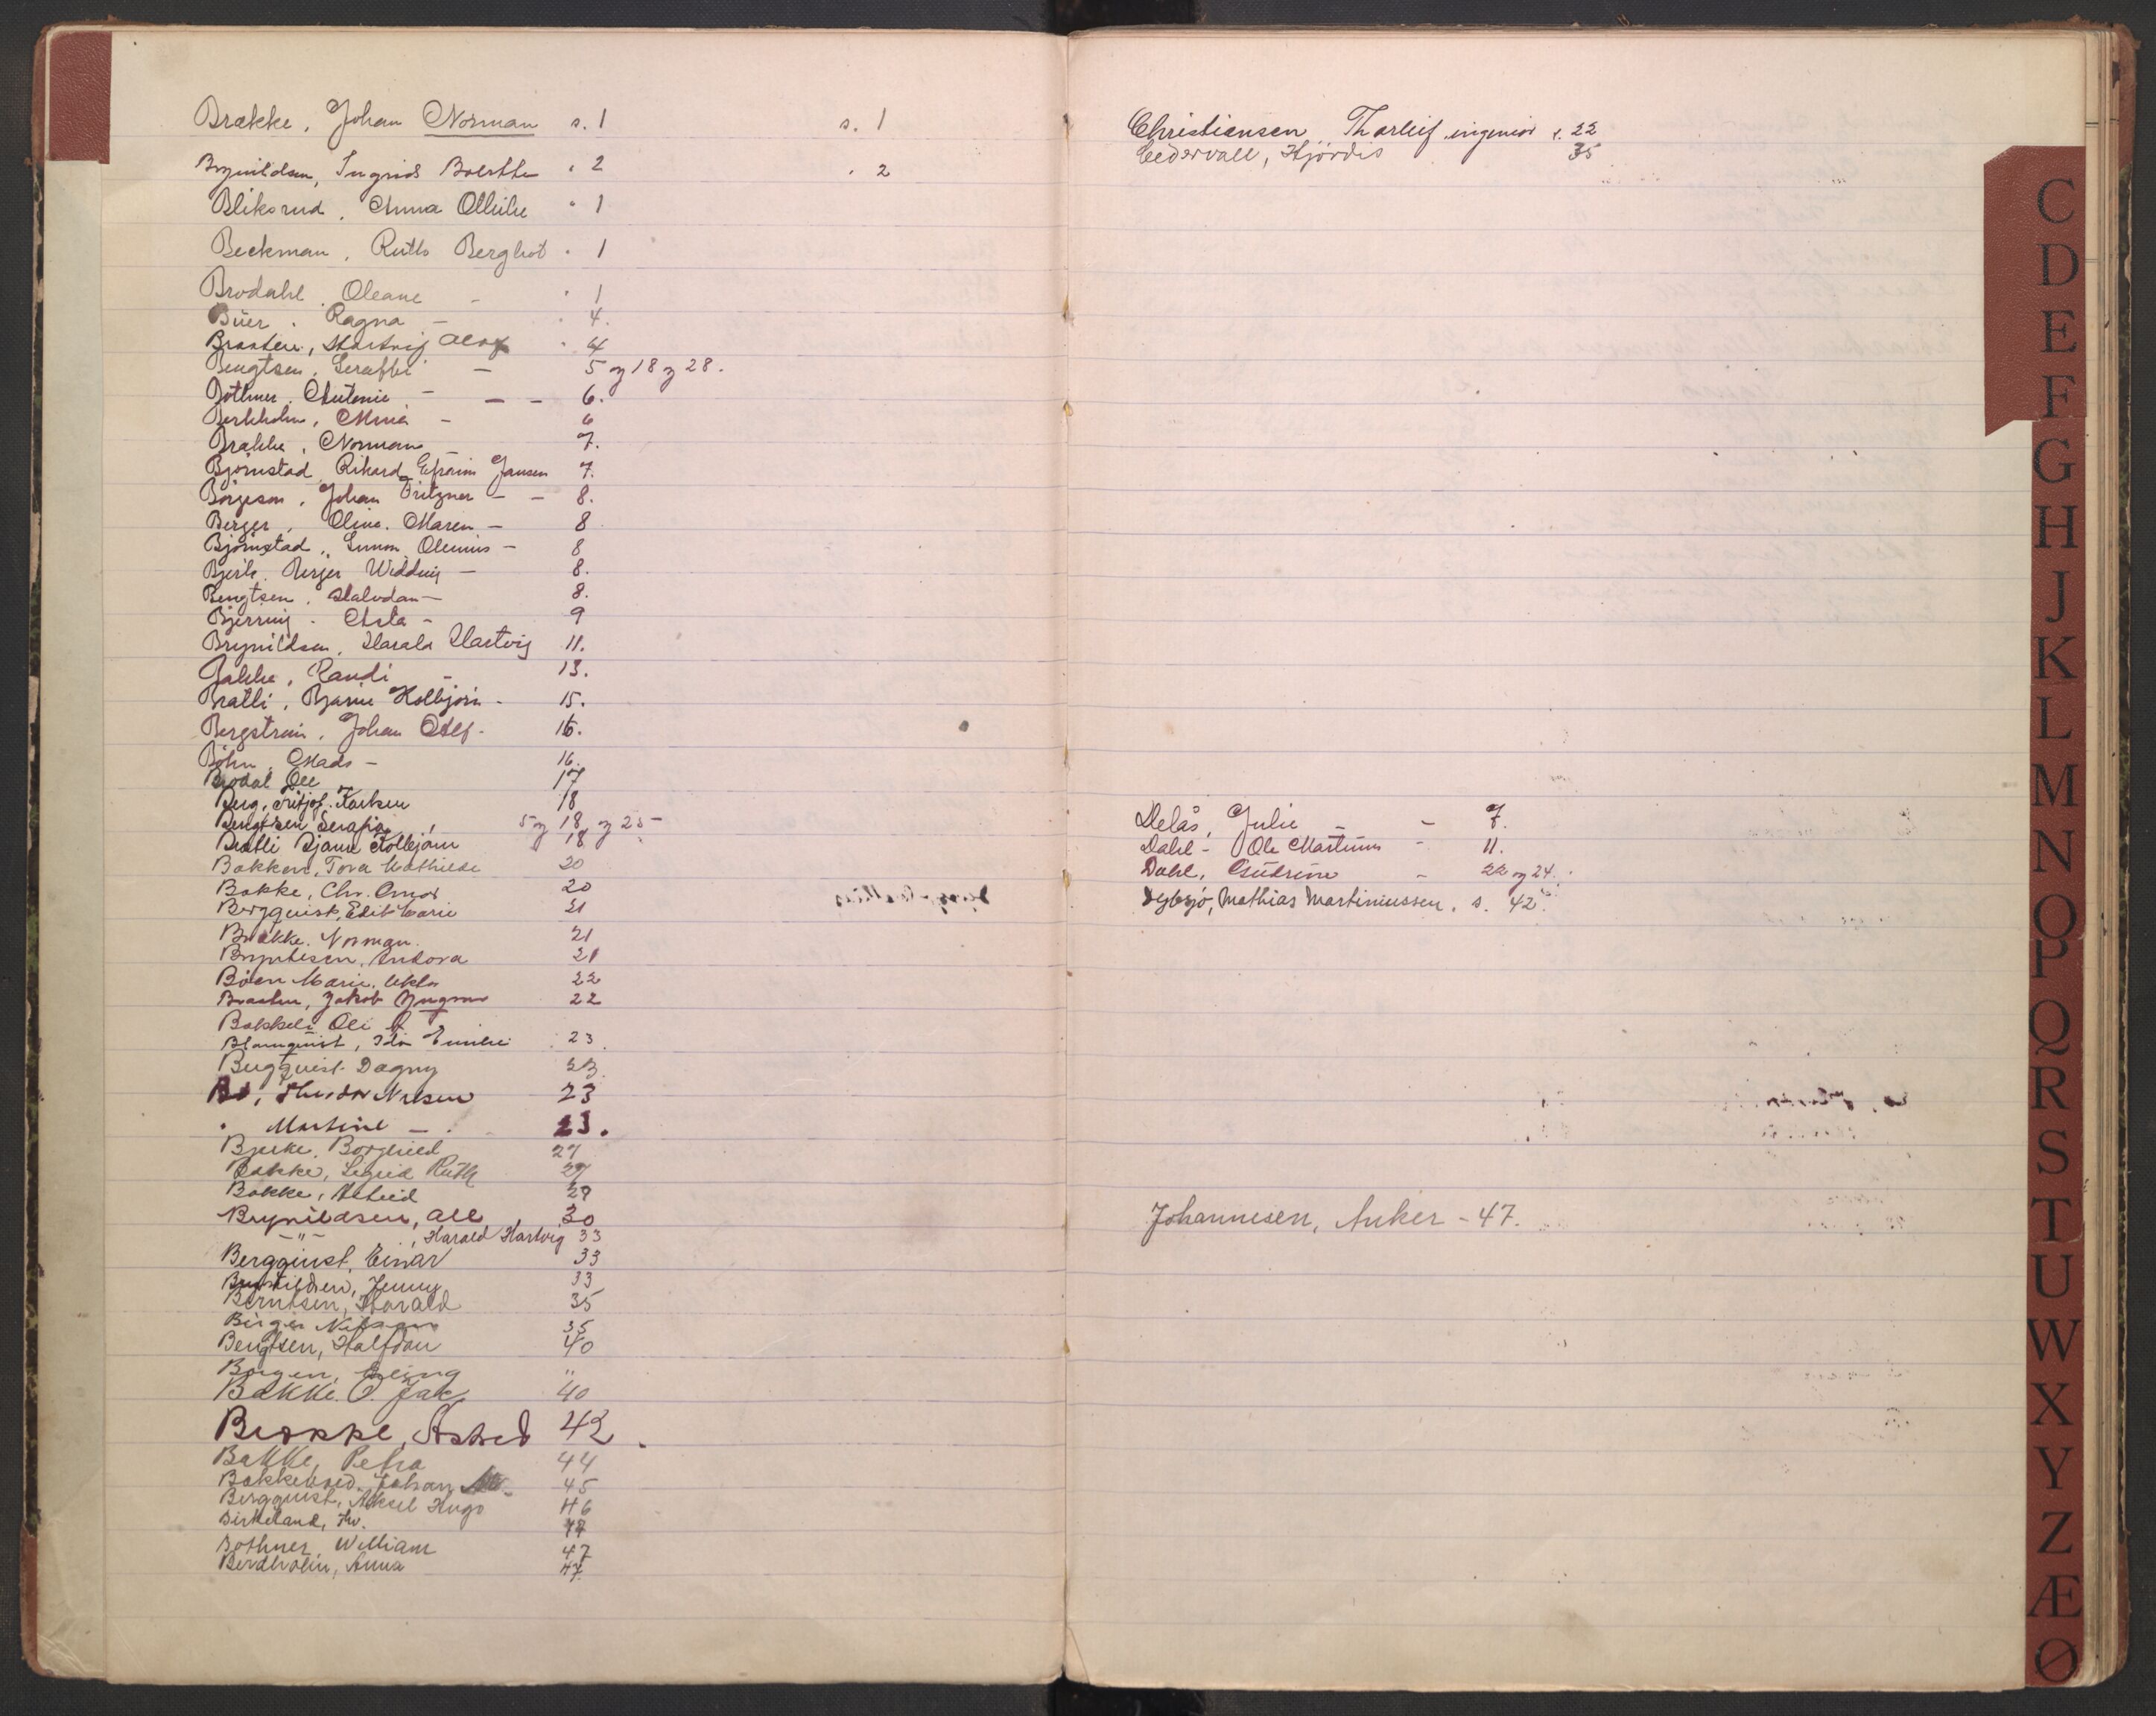 Brække, Johan Norman s. 1 s. 1
Brynildsen, Ingrid Borethe " 2 " 2
Bliksrud, Anna Othilie " 1
Beckman, Ruth Bergliot " 1
Brodahl, Oleane - " 1
Büer, Ragna - " 4.
Braaten, Hartvig Olaf " 4
Bengtsen, Seraffi - 5 og 18 og 28.
Bothner, Antonie - - - 6.
Berkholm, Anna - 6
Brække, Norman - 7.
Bjørnstad, Rikard Efraim Jansen 7.
Børgeson, Johan Fritzner - - 8.
Berger, Oline Maren - 8
Bjørnstad, Gunnar Olenius - 8
Bjerke, Birger Wedding - 8.
Bengtsen, Halvdan - 8.
Bjerring, Asta - 9
Brynildsen, Harald Hartvig 11.
Bakke, Randi - 13.
Bratli, Bjarne Kolbjørn - 15.
Bergstrøm, Johan Adolf - 16.
Bøhn, Mads - 16.
Brodal Ole 17
Berg, Fritjof Karlsen 18
Bengtsen Serafia, 5 og 18 og 25
Bratli Bjarne Kolbjørn 18
Bakken, Tora Mathilde 20
Bakke, Chr. Omar 20
Bergquist, Edit Marie 21
Brække, Norman 21
Bryntesen, Andora 21
Böen Marie, Thekla 22
Braaten, Jakob Ingvar 22
Bakkeli Oli
Blomquist, Ida Emilie 23.
Bergquist Dagny 23.
Bø, Theodor Nilsen 23
" Martine - . 23.
Bjerke, Borghild 27
Bakke, Sigrid Ruth 27
Bakke, Astrid 28
Brynildsen, Alf 30
-"- , Harald Hartvig 33
Bergquist, Einar 33
Brynildsen, Jenny 33
Berntsen, Harald 35
Birger Nilsson 35
Bengtsen, Halfdan 40
Borgen, Erling "
Bakke. O. Jak. 40
Brække, Astrid 42.
Bakke, Petra 44
Bakkerud, Johan 45
Bergquist, Aksel Hugo 46
Birkeland, Hr. 47
Bothner, William 47
Berdholin, Anna 47.
Christiansen, Thorleif ingeniør s. 22
Cedervall, Hjørdis 35
Delås, Julie - - 7.
Dahl - Ole Martinus - 11.
Dahl, Gudrine - 22 og 24.
Dybsjø, Mathias Martiniussen, s. 42.
Johannesen, Anker - 47.
C
D
E
F
G
H
J
K
L
M
N
O
P
Q
R
S
T
U
W
X
Y
Z
Æ
Ø